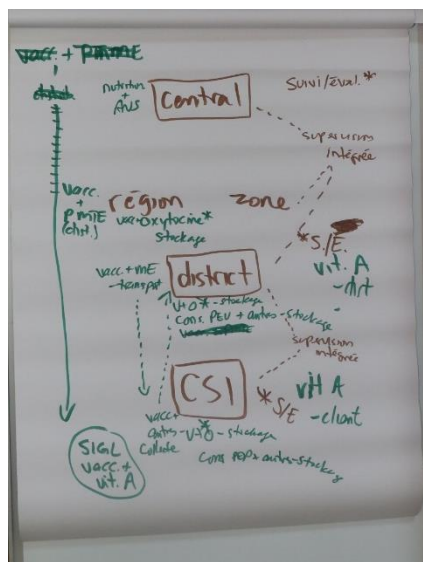 vacc. + PTME
nutrition
+
ANS
Central
Suivi/éval.*
supervision
intégrée
vacc.
+
PMTE
(chol.)
région
zone
vac+oxytocine*
stockage
*S./E.
vit. A
vacc.+ME
-transport
district
-dist
V+O*-stockage
Cons. PEV + autres-stockage
supervision
intégrée
CSI
vit A
*S/E
-client
vacc+
autres-
collecte
V+O*-stockage
Cons PEV+ autres-stockage
SIGL
vacc.+
vit. A